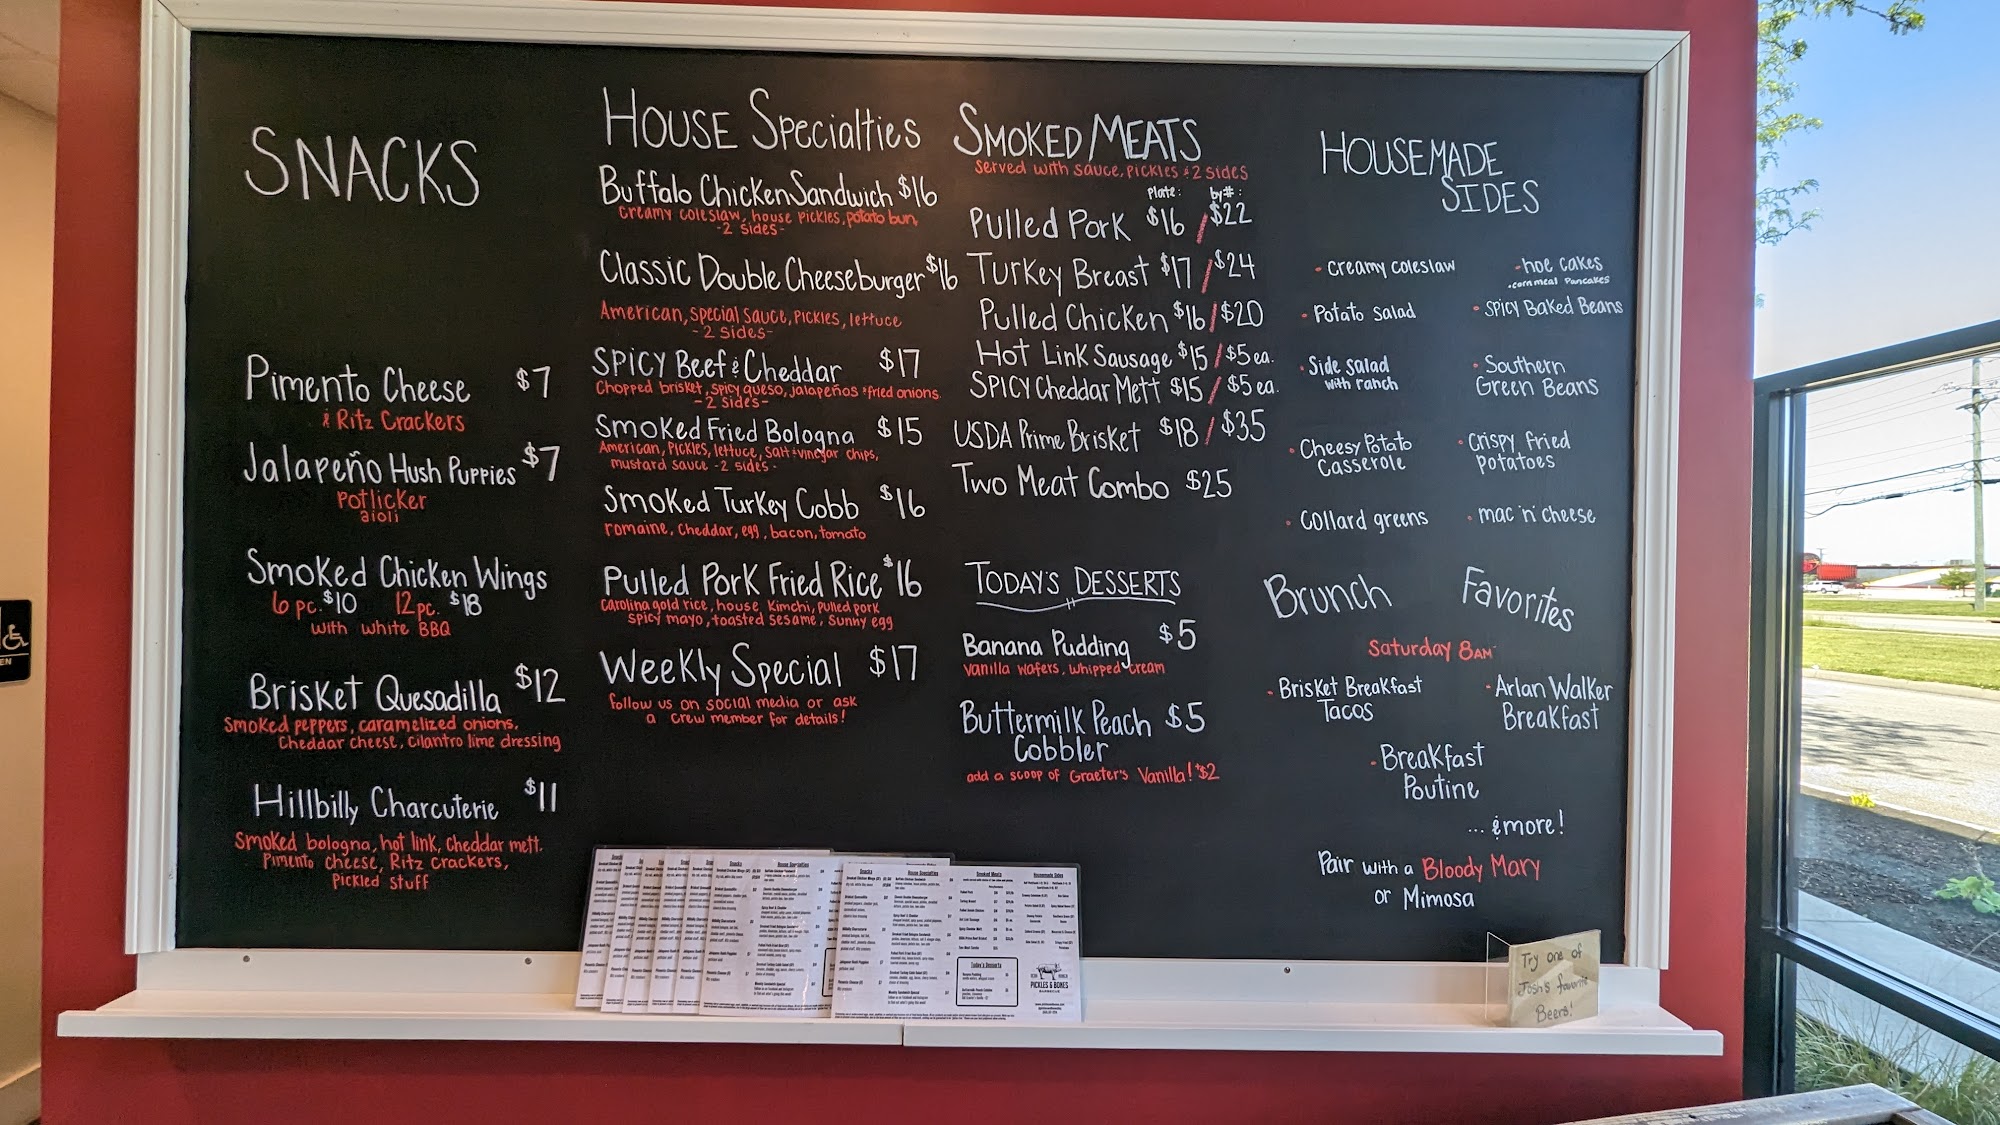 SNACKS
Pimento Cheese $7
& Ritz Crackers
Jalapeño Hush Puppies $7
potlicker
aioli
Smoked Chicken Wings
6 pc. $10 12 pc. $18
with white BBQ
Brisket Quesadilla $12
smoked peppers, caramelized onions,
cheddar cheese, cilantro lime dressing
Hillbilly Charcuterie $11
smoked bologna, hot link, cheddar mett.
Pimento cheese, Ritz crackers,
pickled stuff
HOUSE Specialties
Buffalo Chicken Sandwich $16
creamy coleslaw, house pickles, potato bun,
-2 sides-
Classic Double Cheeseburger $16
American, special sauce, pickles, lettuce
-2 sides-
Spicy Beef & Cheddar $17
Chopped brisket, spicy queso, jalapeños & fried onions.
-2 sides-
Smoked Fried Bologna $15
American, pickles, lettuce, salt & vinegar chips,
mustard sauce -2 sides-
Smoked Turkey Cobb $16
romaine, cheddar, egg, bacon, tomato
Pulled Pork Fried Rice $16
Carolina gold rice, house kimchi, pulled pork
spicy mayo, toasted sesame, sunny egg
Weekly Special $17
follow us on social media or ask
a crew member for details!
SMOKED MEATS
served with sauce, pickles & 2 sides
plate: by#:
Pulled Pork $16 / $22
Turkey Breast $17 / $24
Pulled Chicken $16 / $20
Hot Link Sausage $15 / $5 ea.
SPICY Cheddar Mett $15 / $5 ea.
USDA Prime Brisket $18 / $35
Two Meat Combo $25
TODAY'S DESSERTS
Banana Pudding $5
vanilla wafers, whipped cream
Buttermilk Peach $5
Cobbler
add a scoop of Graeter's Vanilla! +$2
HOUSEMADE
SIDES
- creamy coleslaw
- hoe cakes
. cornmeal pancakes
- Potato salad
- Spicy Baked Beans
- Side salad
with ranch
- Southern
Green Beans
- Cheesy Potato
Casserole
- Crispy fried
potatoes
- Collard greens
- mac 'n' cheese
Brunch Favorites
Saturday 8AM
- Brisket Breakfast
Tacos
- Arlan Walker
Breakfast
- Breakfast
Poutine
... & more!
Pair with a Bloody Mary
or Mimosa
Snacks
House Specialties
Smoked Meats
Housemade Sides
Today's Desserts
PICKLES & BONES
BARBECUE
Try one of
Josh's favorite
Beers!